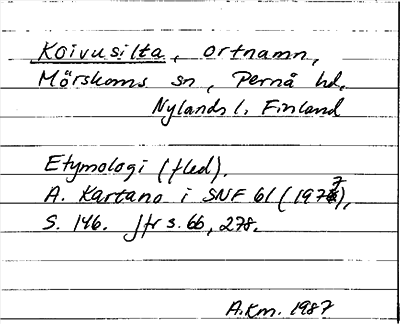 Koivusilta, ortnamn,
Mörskoms sn, Pernå hd,
Nylands l. Finland
Etymologi (fled).
A. Kartano i SNF 61 (1977),
S. 146. Jfr s. 66, 278.
A.Km. 1987